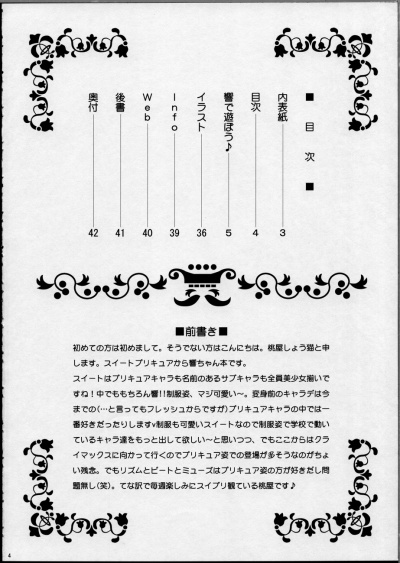 ■ 目 次 ■
内表紙 3
目次 4
響で遊ぼう♪ 5
イラスト 36
Info 39
Web 40
後書 41
奥付 42
■前書き■
初めての方は初めまして。そうでない方はこんにちは。桃屋しょう猫と申
します。スイートプリキュアから響ちゃん本です。
スイートはプリキュアキャラも名前のあるサブキャラも全員美少女揃いで
すね！中でももちろん響!!制服姿、マジ可愛い～。変身前のキャラデは今
までの(…と言ってもフレッシュからですが)プリキュアキャラの中では一
番好きだったりします♥制服も可愛いスイートなので制服姿で学校で動い
ているキャラ達をもっと出して欲しい～と思いつつ、でもここからはクラ
イマックスに向かって行くのでプリキュア姿での登場が多そうなのがちょ
い残念。でもリズムとビートとミューズはプリキュア姿の方が好きだし問
題無し(笑)。てな訳で毎週楽しみにスイプリ観ている桃屋です♪
4